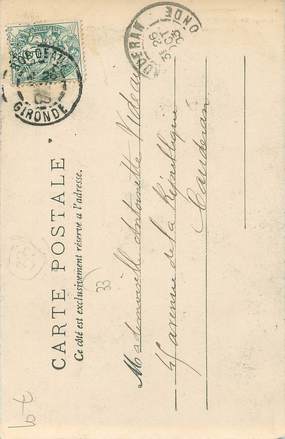 CARTE POSTALE
Ce côté est exclusivement réservé à l'adresse.
Mademoiselle Antoinette
avenue de la République
Caudéran
BORDEAUX
GIRONDE
CAUDERAN
33